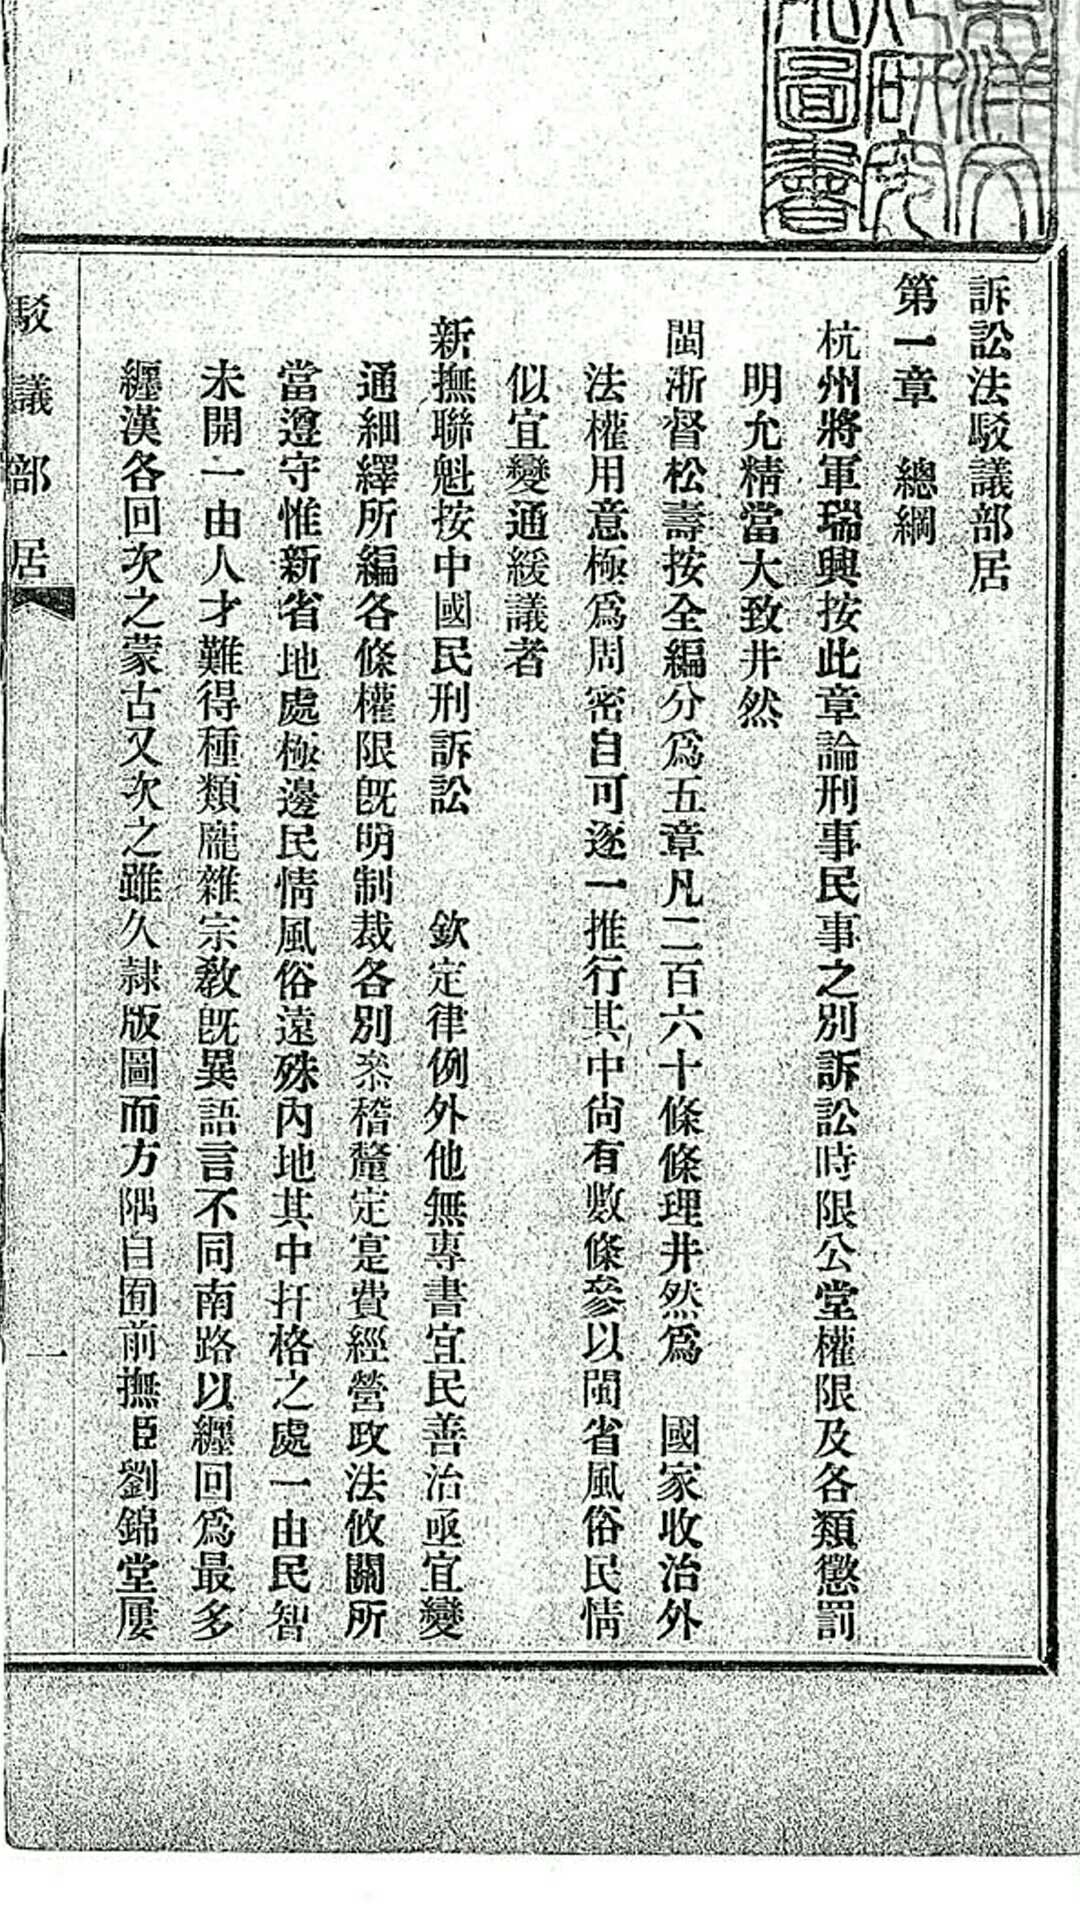 訴訟法駁議部居
第一章　總綱
杭州將軍瑞興按此章論刑事民事之別訴訟時限公堂權限及各類懲罰
明允精當大致井然
閩浙督松壽按全編分爲五章凡二百六十條條理井然爲　國家收治外
法權用意極爲周密自可逐一推行其中尙有數條參以閩省風俗民情
似宜變通緩議者
新撫聯魁按中國民刑訴訟　　欽定律例外他無專書宜民善治亟宜變
通細繹所編各條權限旣明制裁各別叅稽釐定寔費經營政法攸關所
當遵守惟新省地處極邊民情風俗遠殊內地其中扞格之處一由民智
未開一由人才難得種類龐雜宗敎旣異語言不同南路以纏回爲最多
纏漢各回次之蒙古又次之雖久隸版圖而方隅自囿前撫臣劉錦堂屢
駁議部居
一